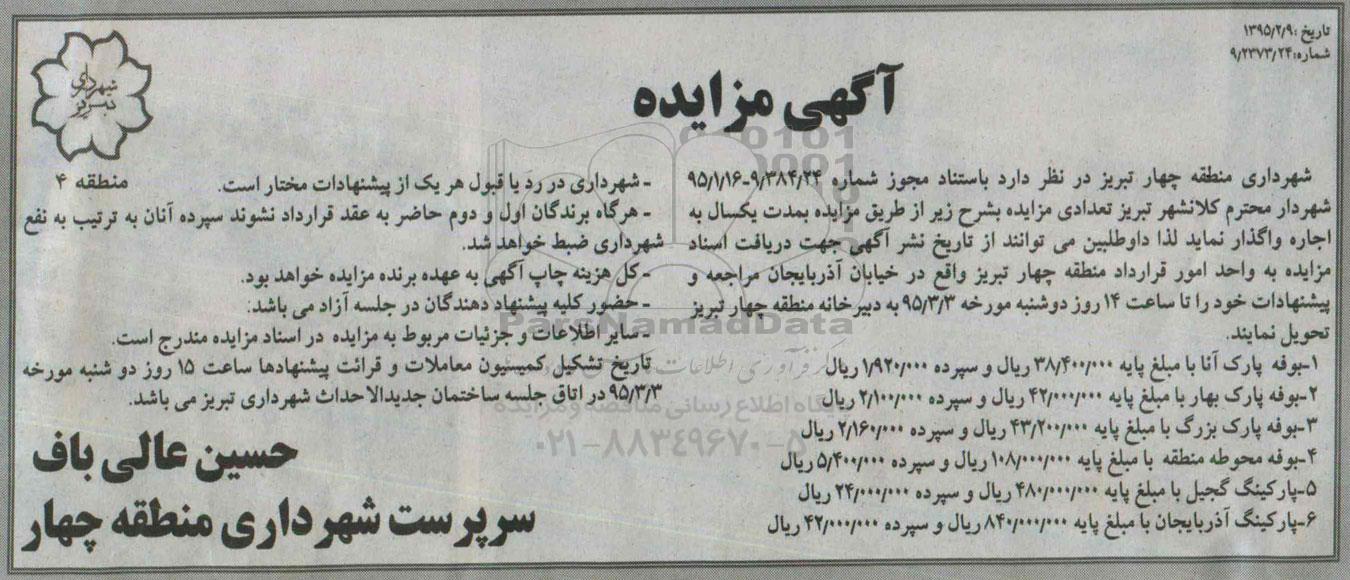 تاریخ :۱۳۹۵/۲/۹
شماره:۹/۲۳۷۳/۲۴
شهرداری
تبریز
منطقه ۴
آگهی مزایده
شهرداری منطقه چهار تبریز در نظر دارد باستناد مجوز شماره ۹/۳۸۴/۲۴-۹۵/۱/۱۶
شهردار محترم کلانشهر تبریز تعدادی مزایده بشرح زیر از طریق مزایده بمدت یکسال به
اجاره واگذار نماید لذا داوطلبین می توانند از تاریخ نشر آگهی جهت دریافت اسناد
مزایده به واحد امور قرارداد منطقه چهار تبریز واقع در خیابان آذربایجان مراجعه و
پیشنهادات خود را تا ساعت ۱۴ روز دوشنبه مورخه ۹۵/۳/۳ به دبیرخانه منطقه چهار تبریز
تحویل نمایند.
۱-بوفه پارک آنا با مبلغ پایه ۳۸/۴۰۰/۰۰۰ ریال و سپرده ۱/۹۲۰/۰۰۰ ریال
۲-بوفه پارک بهار با مبلغ پایه ۴۲/۰۰۰/۰۰۰ ریال و سپرده ۲/۱۰۰/۰۰۰ ریال
۳-بوفه پارک بزرگ با مبلغ پایه ۴۳/۲۰۰/۰۰۰ ریال و سپرده ۲/۱۶۰/۰۰۰ ریال
۴-بوفه محوطه منطقه با مبلغ پایه ۱۰۸/۰۰۰/۰۰۰ ریال و سپرده ۵/۴۰۰/۰۰۰ ریال
۵-پارکینگ گجیل با مبلغ پایه ۴۸۰/۰۰۰/۰۰۰ ریال و سپرده ۲۴/۰۰۰/۰۰۰ ریال
۶-پارکینگ آذربایجان با مبلغ پایه ۸۴۰/۰۰۰/۰۰۰ ریال و سپرده ۴۲/۰۰۰/۰۰۰ ریال
- شهرداری در رد یا قبول هر یک از پیشنهادات مختار است.
- هرگاه برندگان اول و دوم حاضر به عقد قرارداد نشوند سپرده آنان به ترتیب به نفع
شهرداری ضبط خواهد شد.
- کل هزینه چاپ آگهی به عهده برنده مزایده خواهد بود.
- حضور کلیه پیشنهاد دهندگان در جلسه آزاد می باشد.
- سایر اطلاعات و جزئیات مربوط به مزایده در اسناد مزایده مندرج است.
تاریخ تشکیل کمیسیون معاملات و قرائت پیشنهادها ساعت ۱۵ روز دو شنبه مورخه
۹۵/۳/۳ در اتاق جلسه ساختمان جدیدالاحداث شهرداری تبریز می باشد.
حسین عالی باف
سرپرست شهرداری منطقه چهار
ParsNamadData
پایگاه اطلاع رسانی مناقصه و مزایده
۰۲۱-۸۸۳۴۹۶۷۰-۵